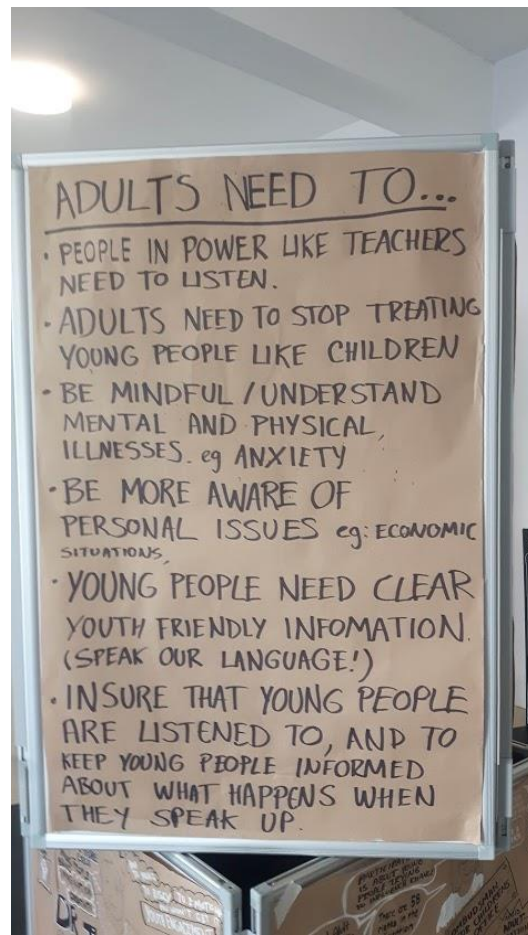 ADULTS NEED TO...
• PEOPLE IN POWER LIKE TEACHERS
NEED TO LISTEN.
• ADULTS NEED TO STOP TREATING
YOUNG PEOPLE LIKE CHILDREN
• BE MINDFUL / UNDERSTAND
MENTAL AND PHYSICAL,
ILLNESSES. eg ANXIETY
• BE MORE AWARE OF
PERSONAL ISSUES eg: ECONOMIC
SITUATIONS,
• YOUNG PEOPLE NEED CLEAR
YOUTH FRIENDLY INFOMATION.
(SPEAK OUR LANGUAGE!')
• INSURE THAT YOUNG PEOPLE
ARE LISTENED TO, AND TO
KEEP YOUNG PEOPLE INFORMED
ABOUT WHAT HAPPENS WHEN
THEY SPEAK UP.
IS ABOUT
PEOPLE